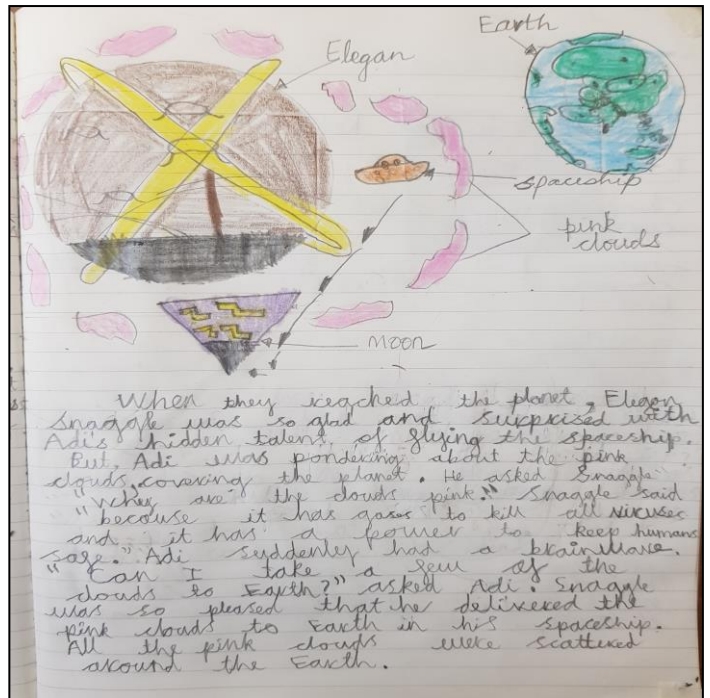 Earth
Elegan
spaceship
pink
clouds
moon
When they reached the planet, Elegan
Snaggle was so glad and surprised with
Adi's hidden talent of flying the spaceship.
But, Adi was pondering about the pink
clouds, covering the planet. He asked Snaggle
"Why are the clouds pink." Snaggle said
"becouse it has gases to kill all viruses
and it has a power to keep humans
safe." Adi suddenly had a brainwave.
"Can I take a few of the
clouds to Earth?" asked Adi. Snaggle
was so pleased that he delivered the
pink clouds to Earth in his spaceship.
All the pink clouds were scattered
around the Earth.